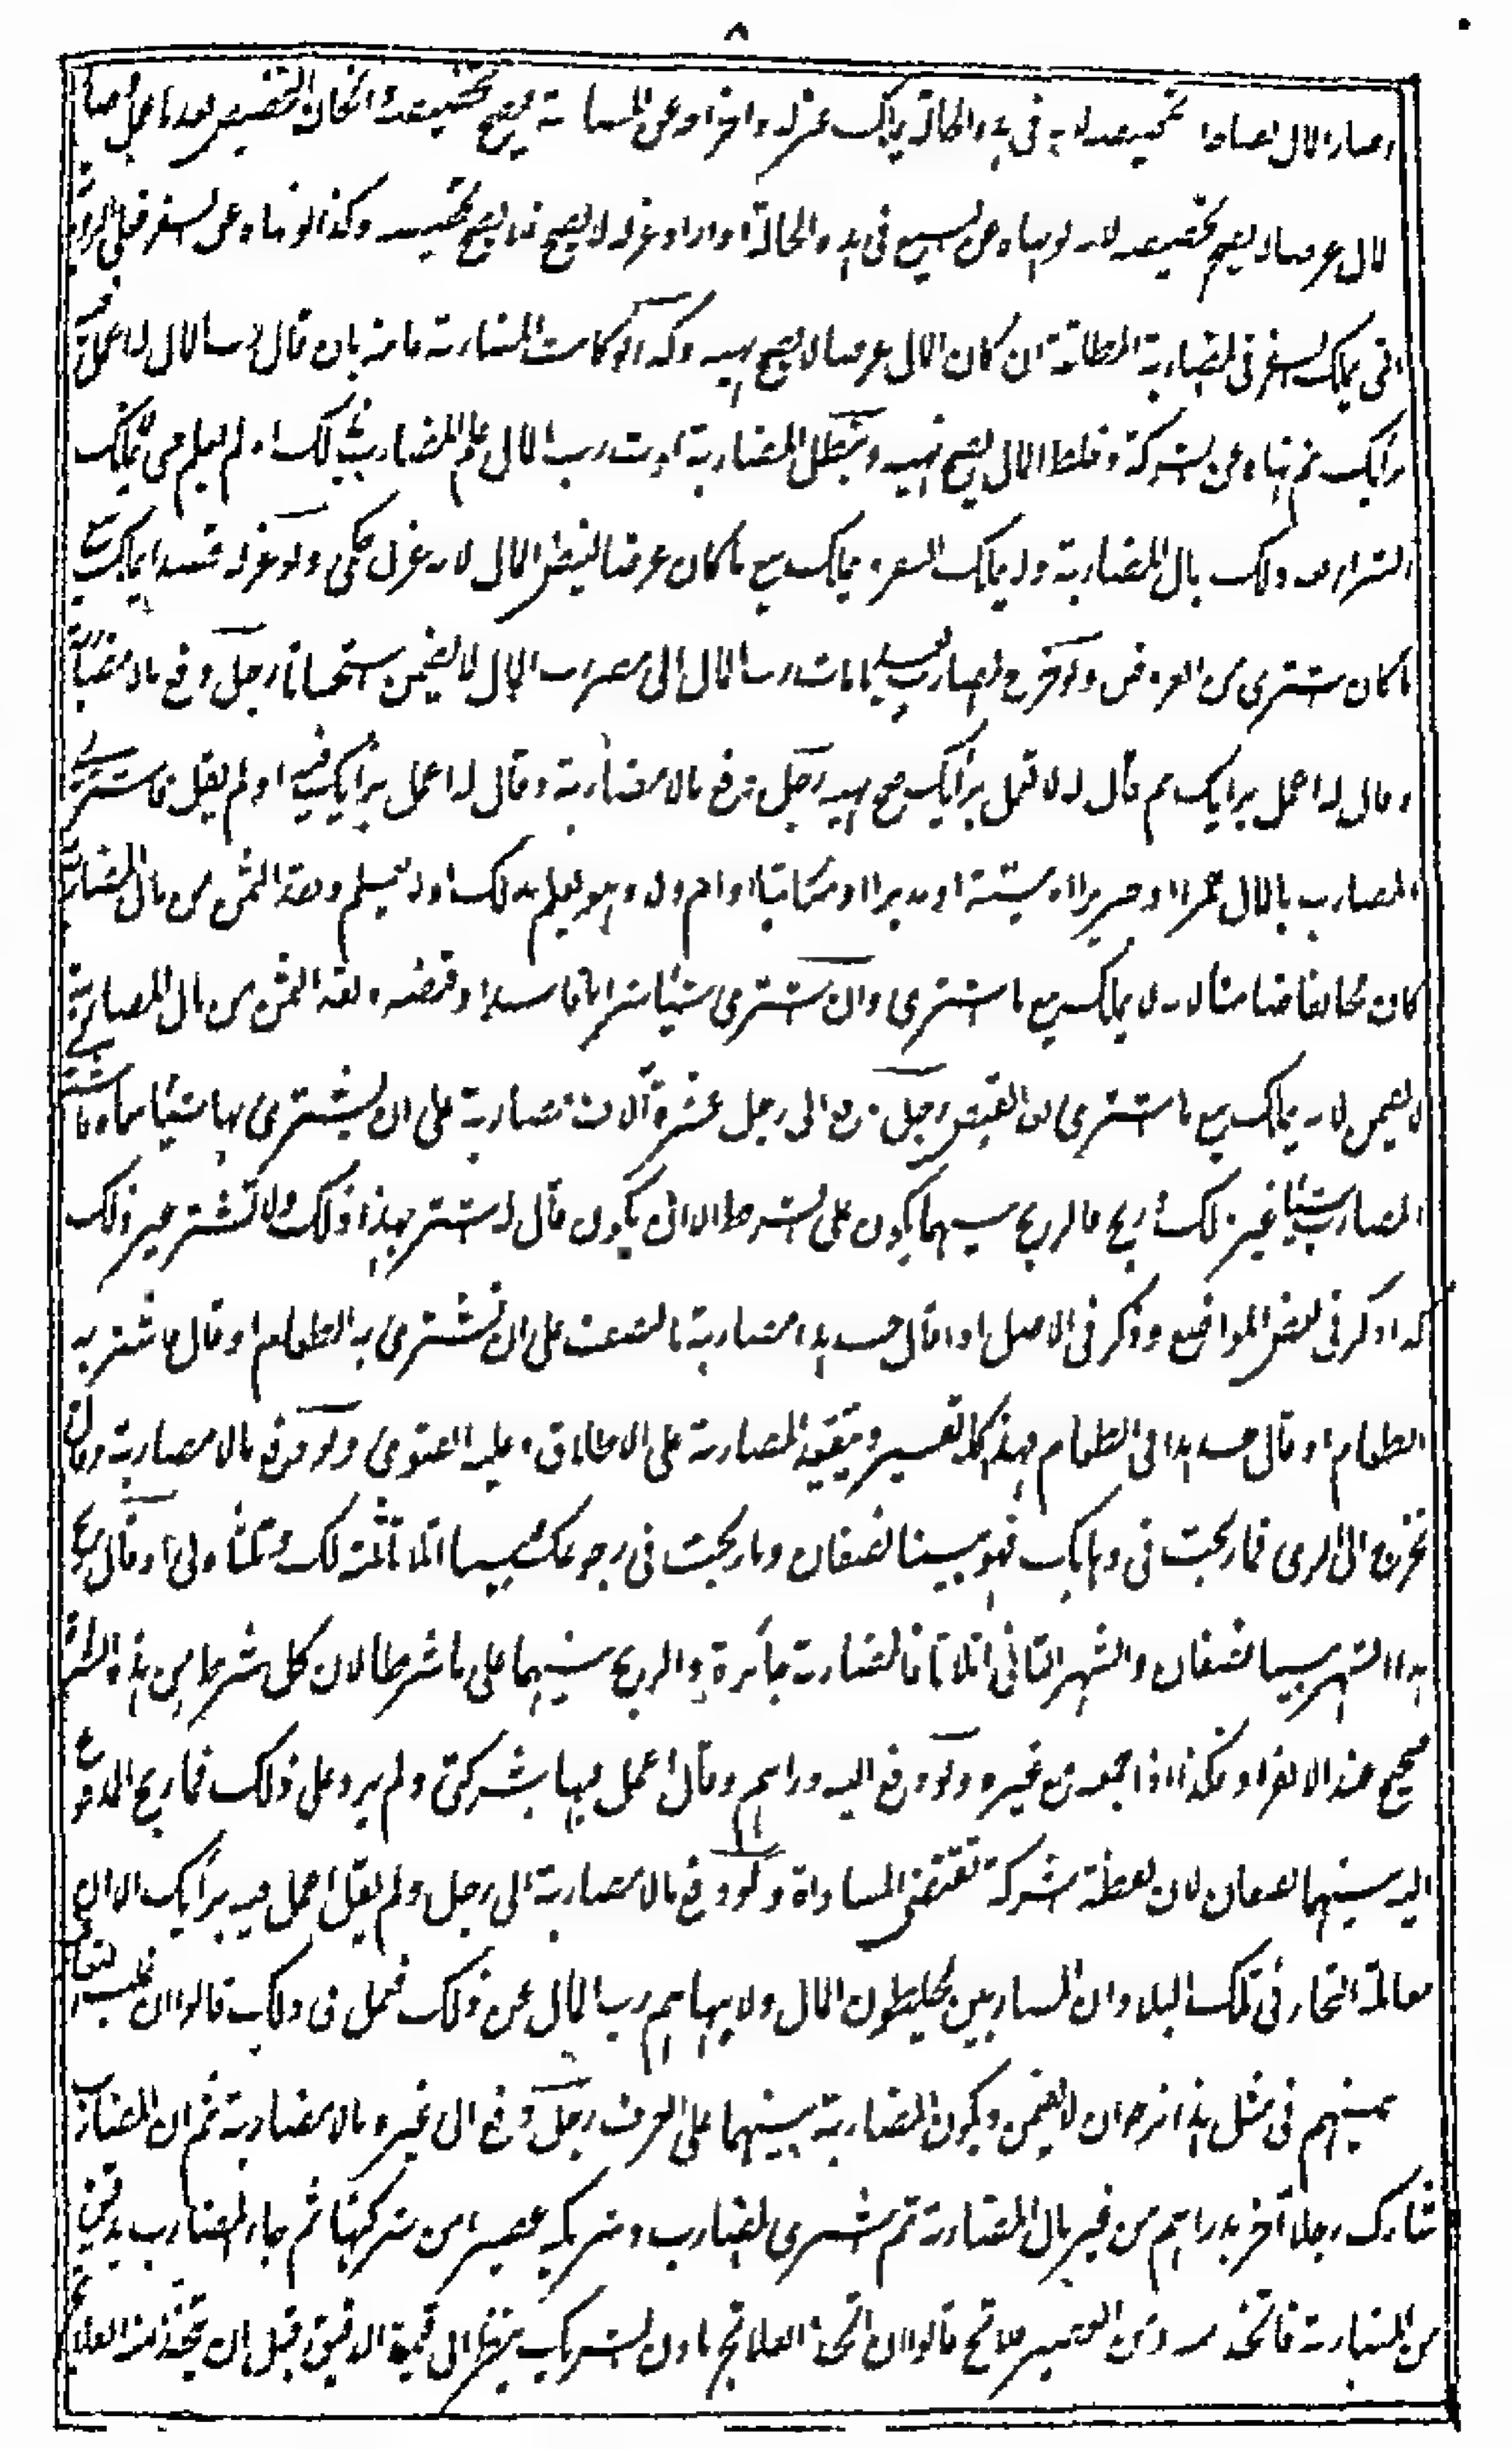 ٨
او صار المال نصا تخصيصه لانه في هذه الحالة يملك عزله واخراجه عن المضاربة فيصح تخصيصه وان كان التخصيص بعد ما صار
المال عرضا لا يصح تخصيصه لانه لو نهاه عن البيع في هذه الحالة او اراد عزله لا يصح فلا يصح تخصيصه وكذا لو نهاه عن السفر فعلى الرواية
التي يملك السفر في المضاربة المطلقة ان كان المال عرضا لا يصح نهيه وكذا لو كانت المضاربة عامة بان قال رب المال له اعمل فيه
برايك ثم نهاه عن الشركة وخلط المال يصح نهيه وتبطل المضاربة بموت رب المال علم المضارب بذلك او لم يعلم حتى لا يملك
الشراء بعد ذلك بمال المضاربة ولا يملك السفر ويملك بيع ما كان عرضا لينض المال لانه عزل حكمي ولو عزله قصدا يملك بيع
ما كان يشتري من العروض ولو خرج المضارب بعد ما مات رب المال الى مصر رب المال لا يضمن استحسانا رجل دفع مالا مضاربة
وقال له اعمل برايك ثم قال له لا تعمل برايك صح نهيه رجل دفع مالا مضاربة وقال له اعمل برايك فيه او لم يقل فاشترى
المضارب بالمال خمرا او خنزيرا او ميتة او مدبرا او مكاتبا او ام ولد وهو يعلم بذلك او لم يعلم ونقد الثمن من مال المضاربة
كان مخالفا ضامنا لانه لا يملك بيع ما اشترى وان اشترى شيئا شراء فاسدا وقبضه ونقد الثمن من مال المضاربة
لا يضمن لانه يملك بيع ما اشترى بعد القبض رجل دفع الى رجل عشرة آلاف مضاربة على ان يشتري بها شيئا سماه فاشترى
المضارب شيئا غير ذلك وربح فالربح بينهما يكون على الشرط الا ان يكون قال له اشتر بهذا ذلك ولا تشتر غير ذلك
كذا ذكر في بعض المواضع وذكر في الاصل اذا قال خذ هذا مضاربة بالنصف على ان تشتري به الطعام او قال فاشتر به
الطعام او قال خذ هذا في الطعام فهذا كله تفسير وتقييد المضاربة على الاطلاق وعليه الفتوى ولو دفع مالا مضاربة وقال
تخرج الى الري فما ربحت في ذهابك فهو بيننا نصفان وما ربحت في رجوعك بيننا اثلاثا ثلثه لك وثلثاه لي او قال ربح
هذا الشهر بيننا نصفان والشهر الثاني اثلاثا فالمضاربة جائزة والربح بينهما على ما شرطا لان كل شرط من هذه الشروط
صحيح عند الانفراد فكذا اذا جمعه مع غيره ولو دفع اليه دراهم وقال اعمل فيها بشركتي ولم يزد على ذلك فما ربح المدفوع
اليه بينهما نصفان لان لفظة شركة تقتضي المساواة ولو دفع مالا مضاربة الى رجل ولم يقل اعمل فيه برايك الا ان
معاملة التجار في تلك البلاد ان المضاربين يخلطون المال ولا ينهاهم رب المال عن ذلك فعمل في ذلك قالوا ان غلب التعارف
بينهم في مثل هذا نرجو ان لا يضمن ويكون المضاربة بينهما على العرف رجل دفع الى غيره مالا مضاربة ثم ان المضارب
شارك رجلا آخر بدراهم من غير مال المضاربة ثم اشترى المضارب وشريكه عصيرا من شركتهما ثم جاء المضارب بدقيق
من المضاربة فاتخذ منه ومن العصير فلاتج قالوا ان اتخذ الفلاتج باذن الشريك ينظر الى قيمة الدقيق قبل ان يتخذ منه الفلاتج